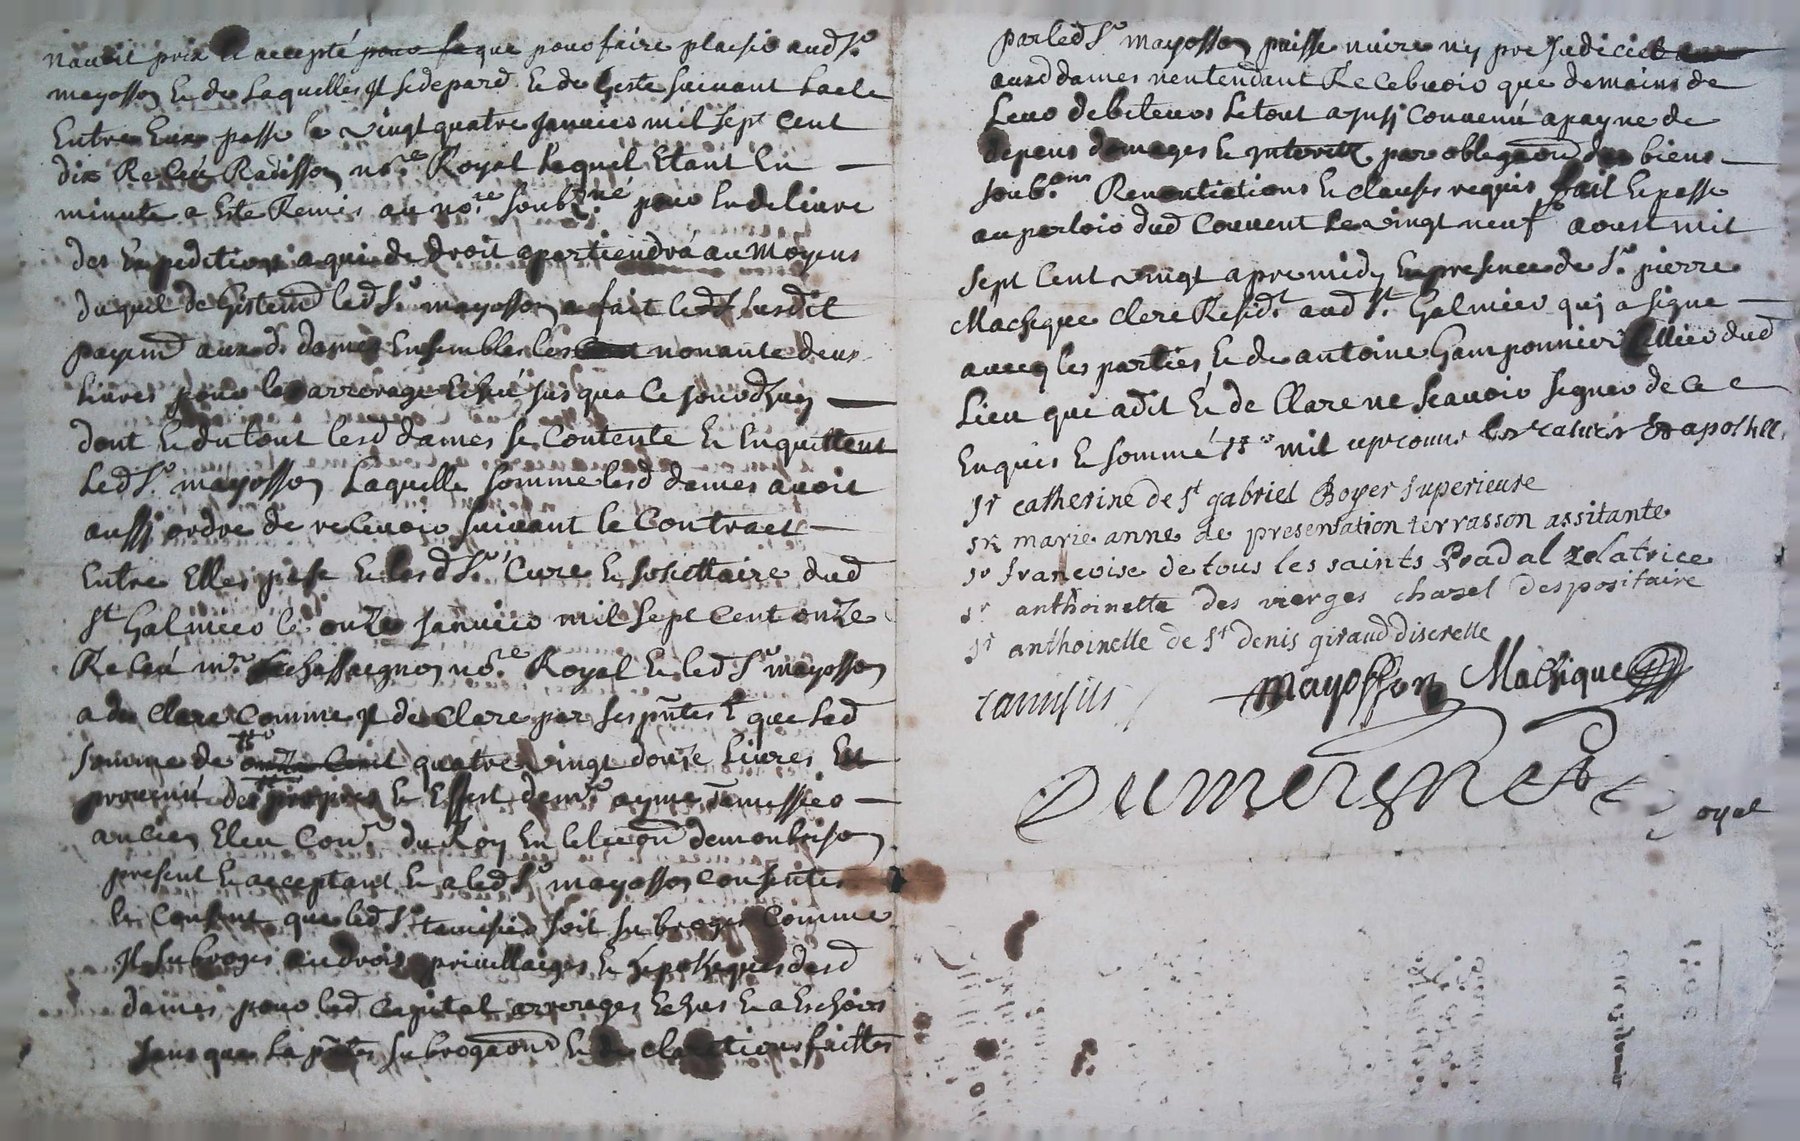 navoit prix et accepté pour se que pour faire plaisir aud Sr
mayosson Et de Laquelles Il se depard Et de Geste suivant Lacte
Entre Eux passe le vingt quatre janvier mil sept cent
dix Receu Radisson nore Royal Lequel Etant En
minutte a Este Remis au nore soubzné pour En delivre
des Expeditions a qui de droit apartiendrá au moyens
duquel de led Sr mayosson a fait led susdit
payemt aux d. dames Ensembles les nonante deux
Livres pour les arrerages Echeu jusqua ce jourdhuy
dont Et du tout lesd dames se Contente Et Enquittent
Led Sr mayosson Laquelle somme lesd dames avoit
aussi ordre de recevoir suivant le Contract
Entre Elles passe Et led Sr Curé Et sosiettaire dud
St Galmier le onze janvier mil sept cent onze
Receu mr Chassaignon nore Royal Et led Sr mayosson
a de Claré Comme Il de Clare par ses pntes que Lad
somme de onze Cent quatre vingt douze Livres Est
provenu des propres Et Effest de mr ayme temissier
ancien Eleu Conr du Roy En lelection de montbrison
present Et acceptant Et a led Sr mayosson Consentis
Et Consent que led Sr temisier soit subrogé Comme
Il subroges au droit privillaiges Et hépothequés desd
dames pour led Capital arrerages Echus Et a Eschoirs
sans que La pntes subrogaon Et de clarations faittes
par led Sr mayosson puisse nuire ny prejudicier
auxd dames nentendant Recebvoir que demains de
Leur debiteurs Le tout ajnsy Convenú a payne de
depens domages Et jnterets par obligaon des biens
soub.ons Renontiations Et clauses requis fait Et passe
au parloir dud Couvent Le vingt neuf aoust mil
sept Cent vingt apremidy En presence de Sr pierre
Machique Clerc Resid.t aud St Galmier quj a signe
avecq les parties Et de antoine Gamponnier Cellier dud
Lieu qui adit Et de Clare ne scavoir signer de ce
Enquis Et sommé mil aprouve les ratures & apostill.
sr catherine de st gabriel Boyer superieure
sr marie anne de presentation terrasson assitante
sr francoise de tous les saints Pradal zelatrice
sr anthoinette des vierges chazel despositaire
sr anthoinette de st denis giraud discrette
tamisier
mayosson
Machique
Royal